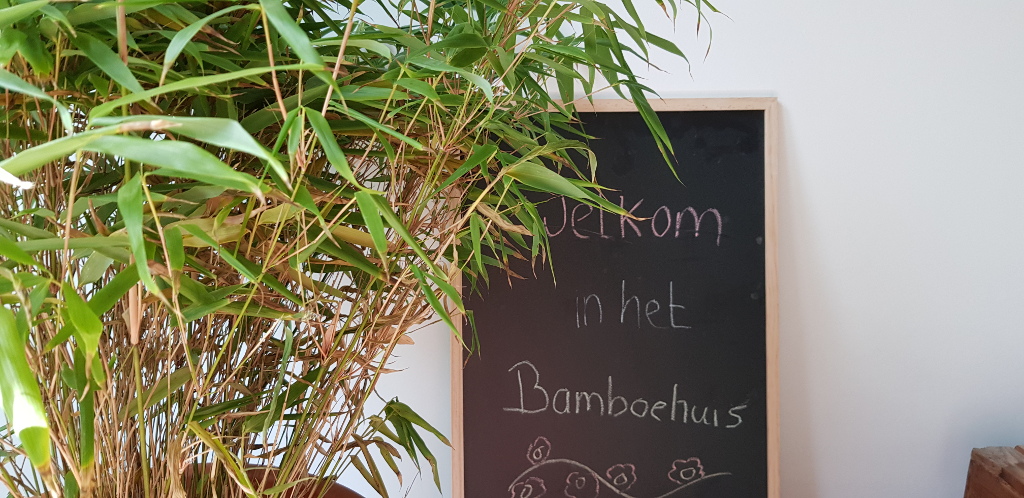 Welkom
in het
Bamboehuis